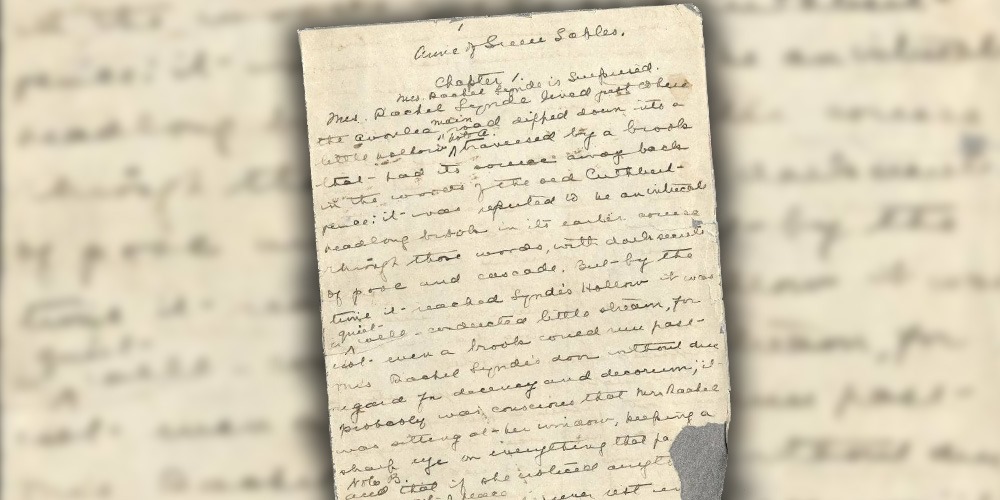 Anne of Green Gables.
Chapter 1.
Mrs. Rachel Lynde is Surprised.
Mrs. Rachel Lynde lived just where
the Avonlea main road dipped down into a
little hollow Note A. traversed by a brook
that had its source away back
in the woods of the old Cuthbert
place; it was reputed to be an
headlong brook in its earlier course
through those woods, with dark secrets
of pool and cascade. But by the
time it reached Lynde's Hollow it was
a quiet well-conducted little stream, for
not even a brook could run past
Mrs Rachel Lynde's door without due
regard for decency and decorum; it
probably was conscious that Mrs Rachel
was sitting at her window, keeping a
sharp eye on everything that pa
Note B.
and that if she noticed anyt
never rest